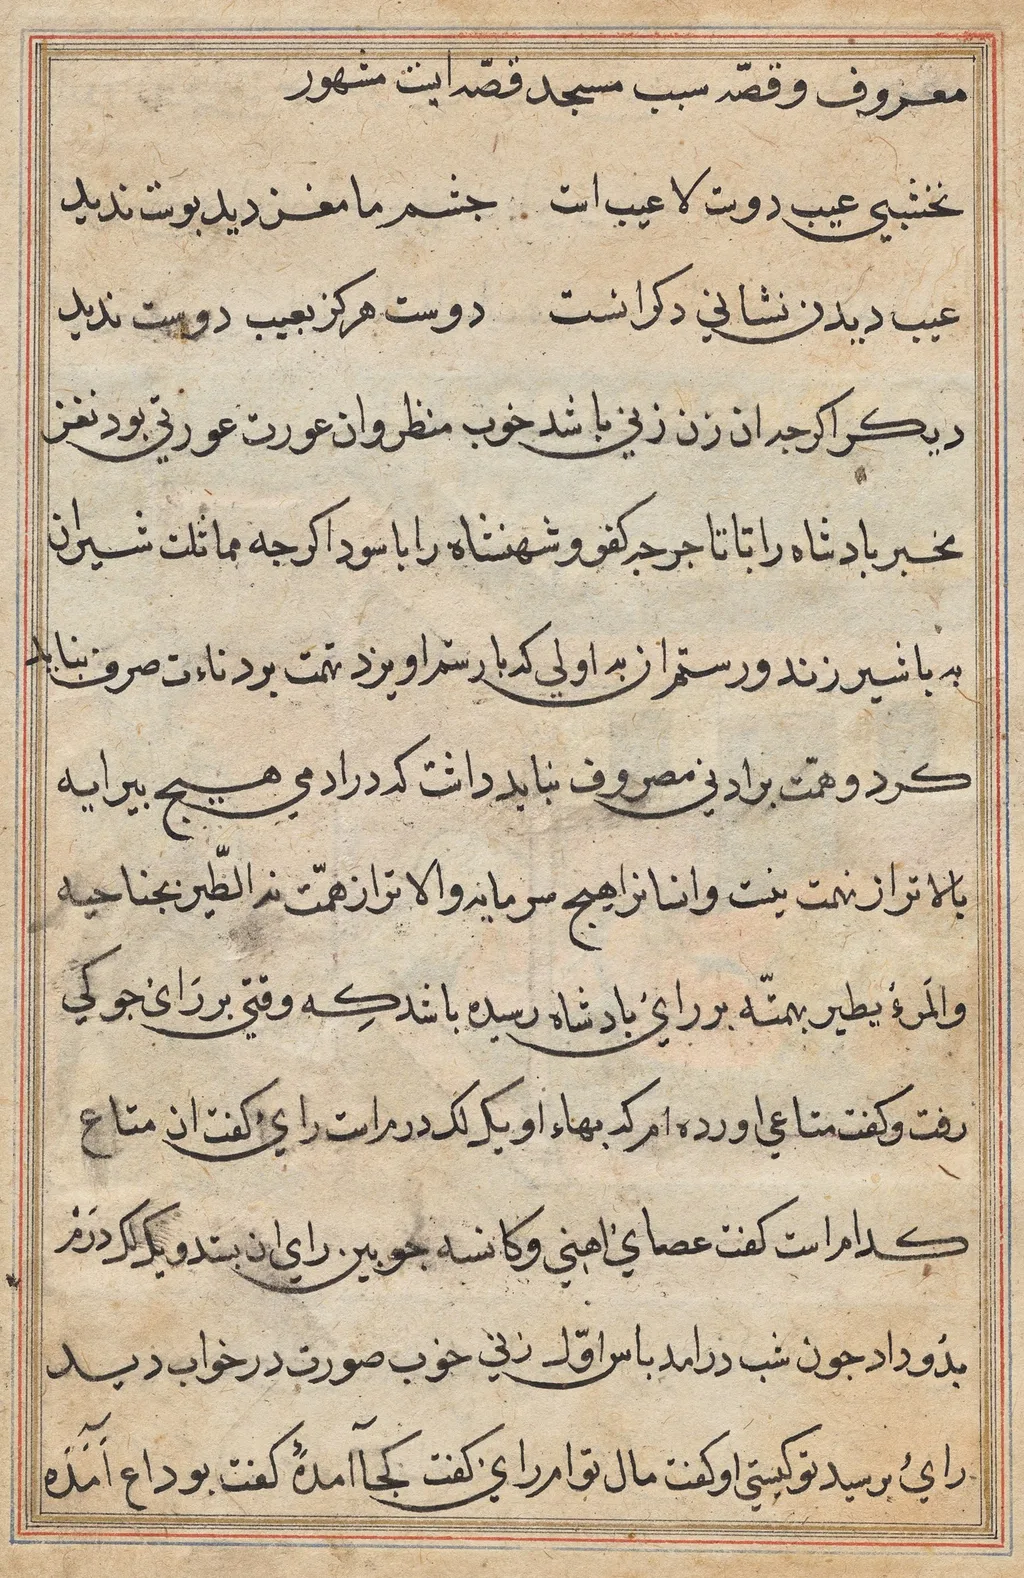 معروف و قصّه سبب مسجد قصّه ایست مشهور
نخشبی عیب دوست لا عیب است جشم ما مغز دید بوست ندید
عیب دیدن نشانی دکرانست دوست هرکز بعیب دوست ندید
دیکر اکرجه ان زن زنی باشد خوب منظر وان عورت عورتی بود نغز
مخبر بادشاه را با تاجر جه کفو و شهنشاه را با سودا کر جه مماثلت شیران
به با شیر زند و رستم ان به اولی که با رستم اویزد تهمت بر دناءت صرف نباید
کرد و همّت بر ادنی مصروف نباید داشت که در ادمی هیج بیرایه
بالاتر از نهمت نیست و انسانرا هیج سرمایه والاتر از همّت نه الطّیر بجناحیه
والمرءُ یطیر بهمتّه بر رایٔ بادشاه رسیده باشد که وقتی بر رَایٔ جوکی
رفت و کفت متاعی اورده ام که بهاء او یک لک درم است رایٔ کفت ان متاع
کدام است کفت عصایٔ اهنی و کانسه جوبین رایٔ ان بستد و یک لک درَمْ
بدُو داد جون شب درامد باس اوّل زنی خوب صورت در خواب دید
رایٔ برسید تو کیستی او کفت مال توام رایٔ کفت کجآ امدهٔ کفت بوداع آمَدَه